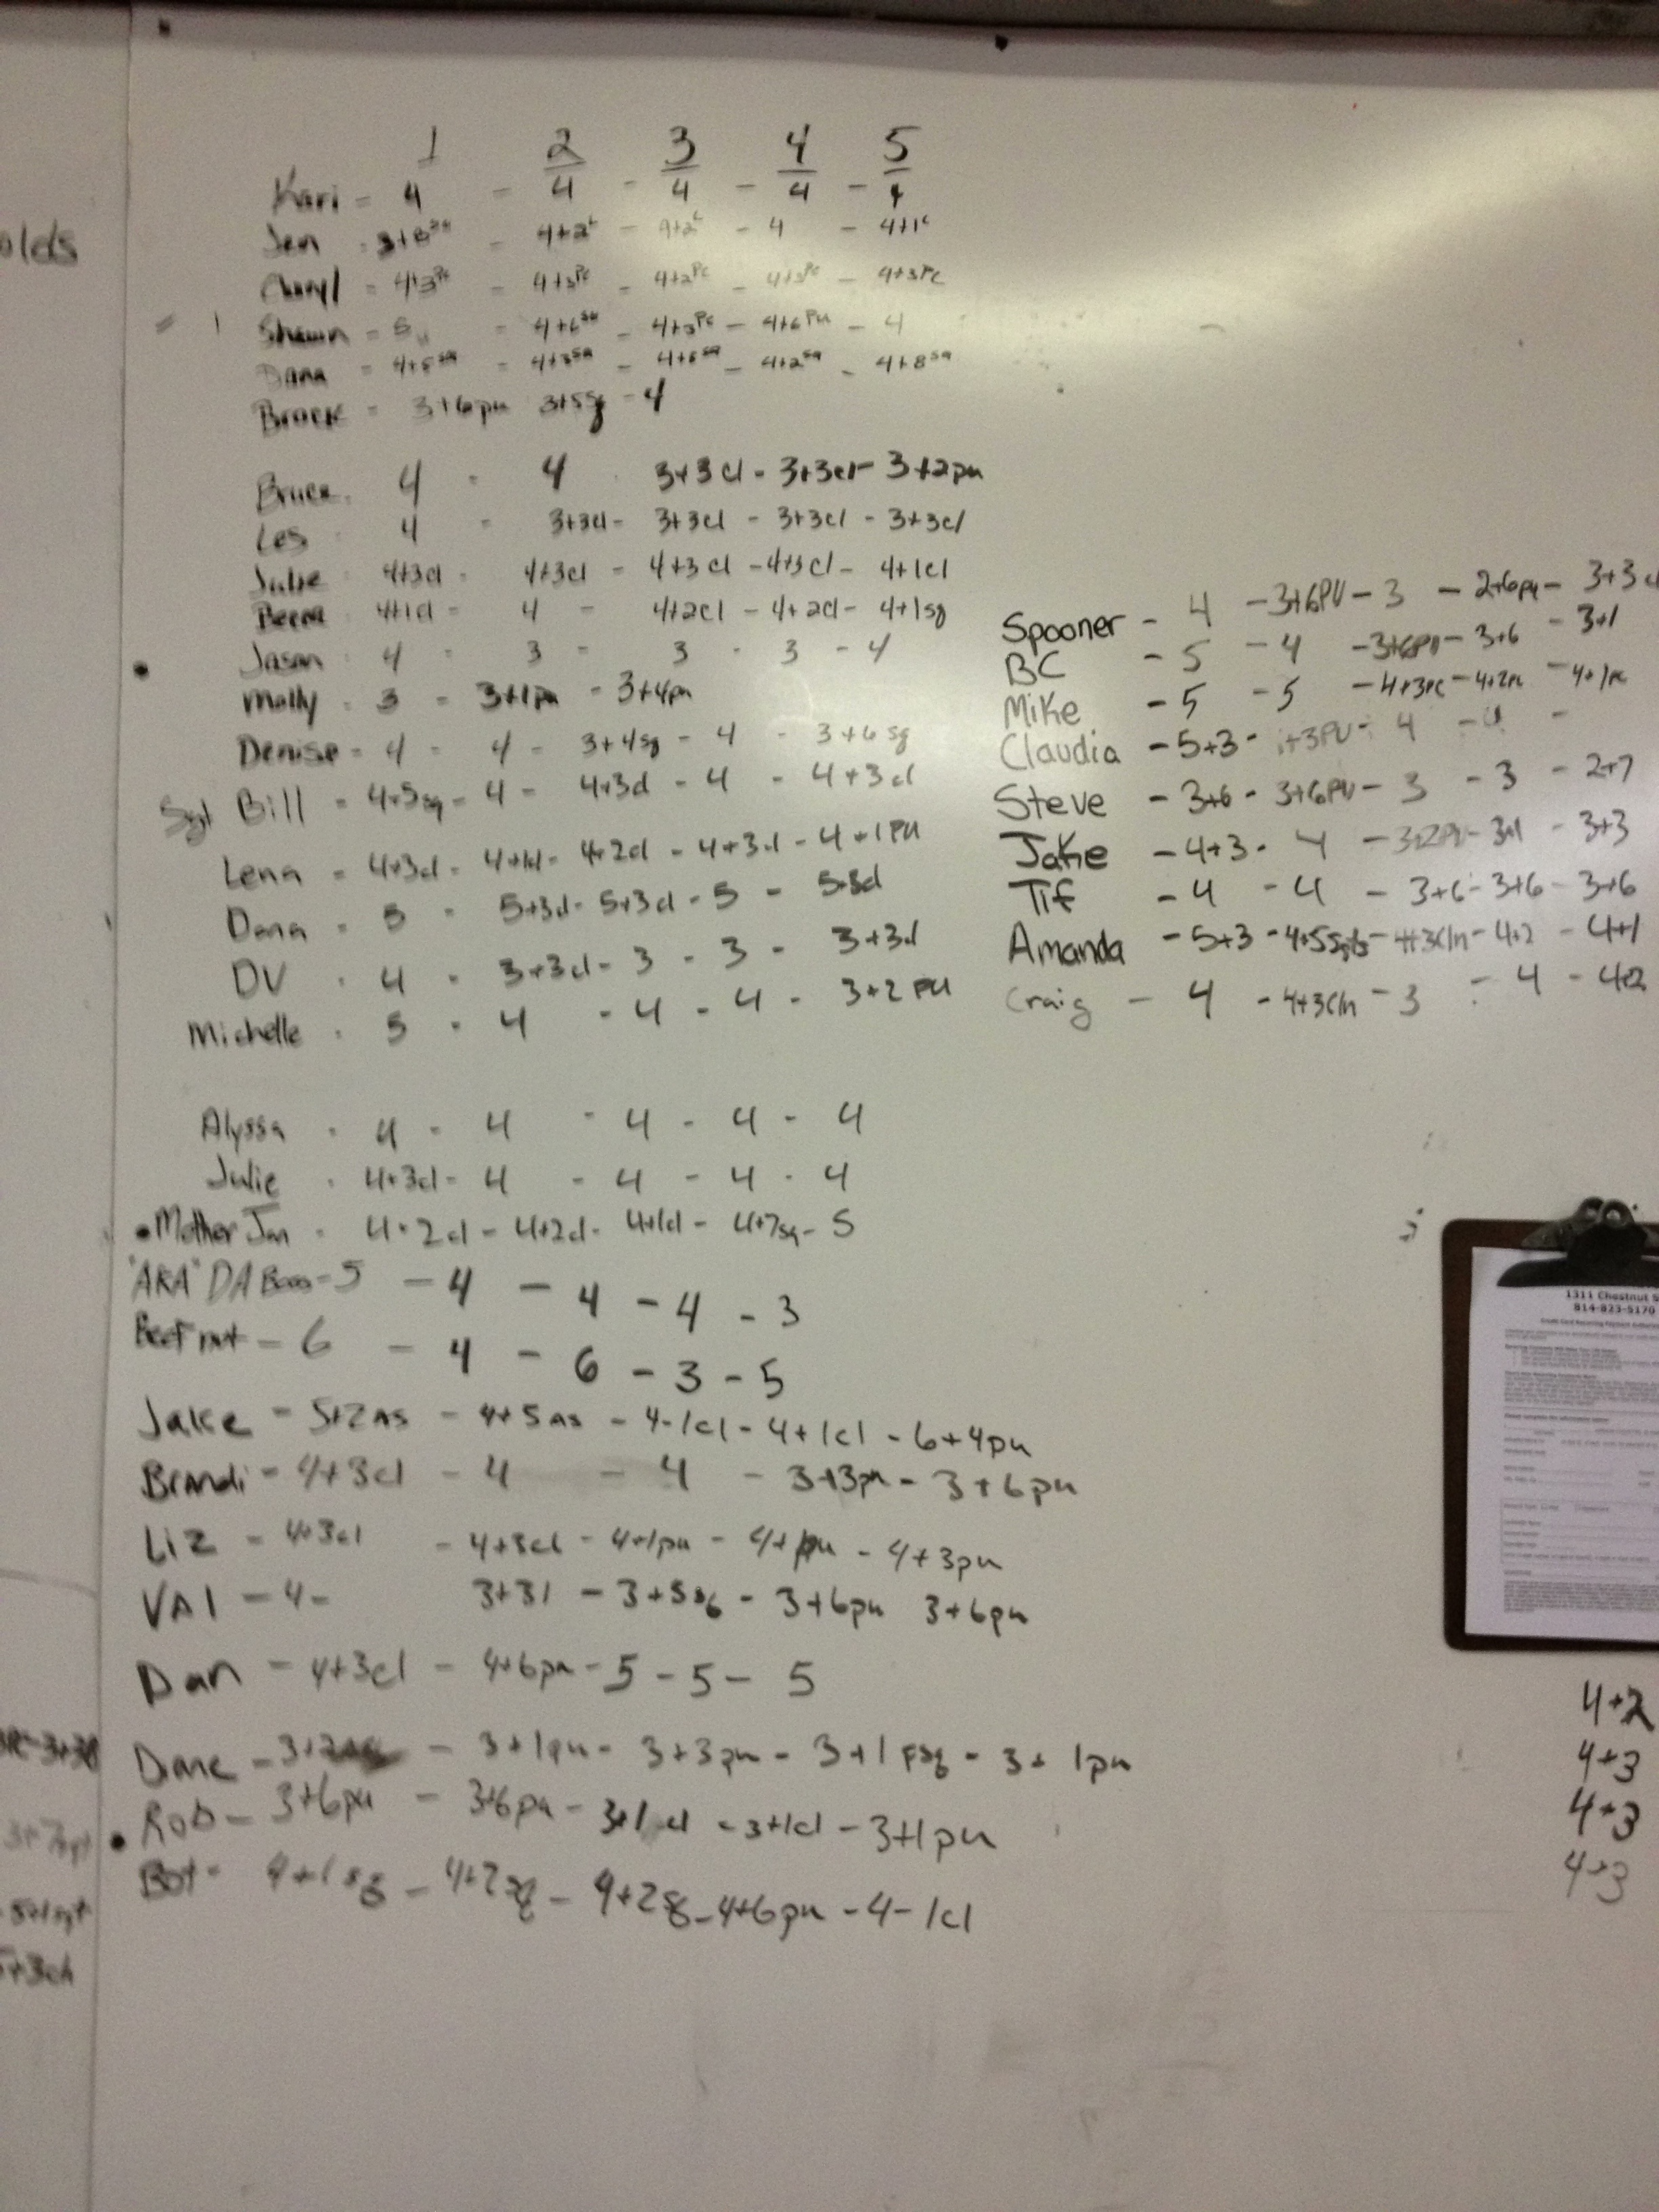 olds
1 2 3 4 5
Kari - 4 - 4 - 4 - 4 - 4
Jen - 3+8 - 4+2c - 4+2c - 4 - 4+1c
Cheryl = 4+3Pc - 4+3Pc - 4+2Pc - 4+3Pc - 4+3Pc
Shawn = 5 = 4+6 - 4+3Pc - 4+6Pu - 4
Dana = 4+5sq = 4+3sq - 4+8sq - 4+2sq - 4+8sq
Brock = 3+6pu 3+5sq - 4
Bruce - 4 - 4 - 3+3cl - 3+3cl - 3+2pu
Les - 4 - 3+3cl - 3+3cl - 3+3cl - 3+3cl
Julie - 4+3cl - 4+3cl - 4+3cl - 4+3cl - 4+1cl
4+1cl - 4 - 4+2cl - 4+2cl - 4+1sq
Jason - 4 - 3 - 3 - 3 - 4
Molly - 3 - 3+1pu - 3+4pu
Denise - 4 - 4 - 3+4sq - 4 - 3+6sq
Sgt Bill = 4+5sq - 4 - 4+3cl - 4 - 4+3cl
Lena = 4+3cl - 4+1cl - 4+2cl - 4+3cl - 4+1PU
Dana = 5 - 5+3cl - 5+3cl - 5 - 5+3cl
DV - 4 - 3+3cl - 3 - 3 - 3+3cl
Michelle - 5 - 4 - 4 - 4 - 3+2PU
Spooner - 4 - 3+6PU - 3 - 2+6pu - 3+3
BC - 5 - 4 - 3+6PU - 3+6 - 3+1
Mike - 5 - 5 - 4+3pc - 4+2pc - 4+1pc
Claudia - 5+3 - +3PU - 4 - 4 -
Steve - 3+6 - 3+6PU - 3 - 3 - 2+7
Jake - 4+3 - 4 - 3+2PU - 3+1 - 3+3
Tif - 4 - 4 - 3+6 - 3+6 - 3+6
Amanda - 5+3 - 4+5 - 4+3Cln - 4+2 - 4+1
Craig - 4 - 4+3Cln - 3 - 4 - 4+2
Alyssa - 4 - 4 - 4 - 4 - 4
Julie - 4+3cl - 4 - 4 - 4 - 4
• Mother Jan - 4+2cl - 4+2cl - 4+1cl - 4+7sq - 5
"AKA" DA Boss - 5 - 4 - 4 - 4 - 3
- 6 - 4 - 6 - 3 - 5
Jake - 5+2AS - 4+5AS - 4-1cl - 4+1cl - 6+4pu
Brandi - 4+3cl - 4 - 4 - 3+3pu - 3+6pu
Liz - 4+3cl - 4+3cl - 4+1pu - 4+1pu - 4+3pu
VAl - 4 - 3+3l - 3+5sg - 3+6pu 3+6pu
Dan - 4+3cl - 4+6pu - 5 - 5 - 5
- 3+2 - 3+1pu - 3+3pu - 3+1psg - 3+1pu
Rob - 3+6pu - 3+6pu - 3+1cl - 3+1cl - 3+1pu
Bot - 4+1sg - 4+2sg - 4+2sg - 4+6pu - 4-1cl
1311 Chestnut S
814-823-5170
4+2
4+3
4+3
4+3